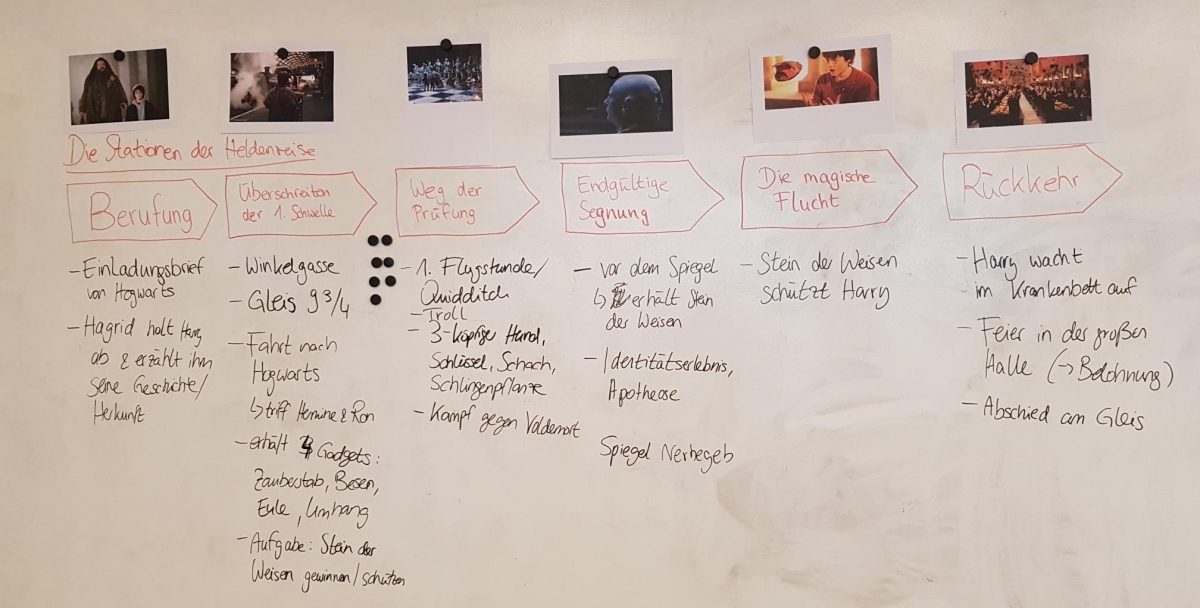 Die Stationen der Heldenreise
Berufung
- Einladungsbrief
von Hogwarts
- Hagrid holt Harry
ab & erzählt ihm
seine Geschichte/
Herkunft
Überschreiten
der 1. Schwelle
- Winkelgasse
- Gleis 9 3/4
- Fahrt nach
Hogwarts
↳ triff Hermine & Ron
- erhält 4 Gadgets:
Zauberstab, Besen,
Eule, Umhang
- Aufgabe: Stein der
Weisen gewinnen/schützen
Weg der
Prüfung
- 1. Flugstunde/
Quidditch
- Troll
- 3-köpfige Hund,
Schlüssel, Schach,
Schlingenpflanze
- Kampf gegen Voldemort
Endgültige
Segnung
- vor dem Spiegel
↳ erhält Stein
des Weisen
- Identitätserlebnis,
Apotheose
Spiegel Nerhegeb
Die magische
Flucht
- Stein der Weisen
schützt Harry
Rückkehr
- Harry wacht
im Krankenbett auf
- Feier in der großen
Halle (→ Belohnung)
- Abschied am Gleis